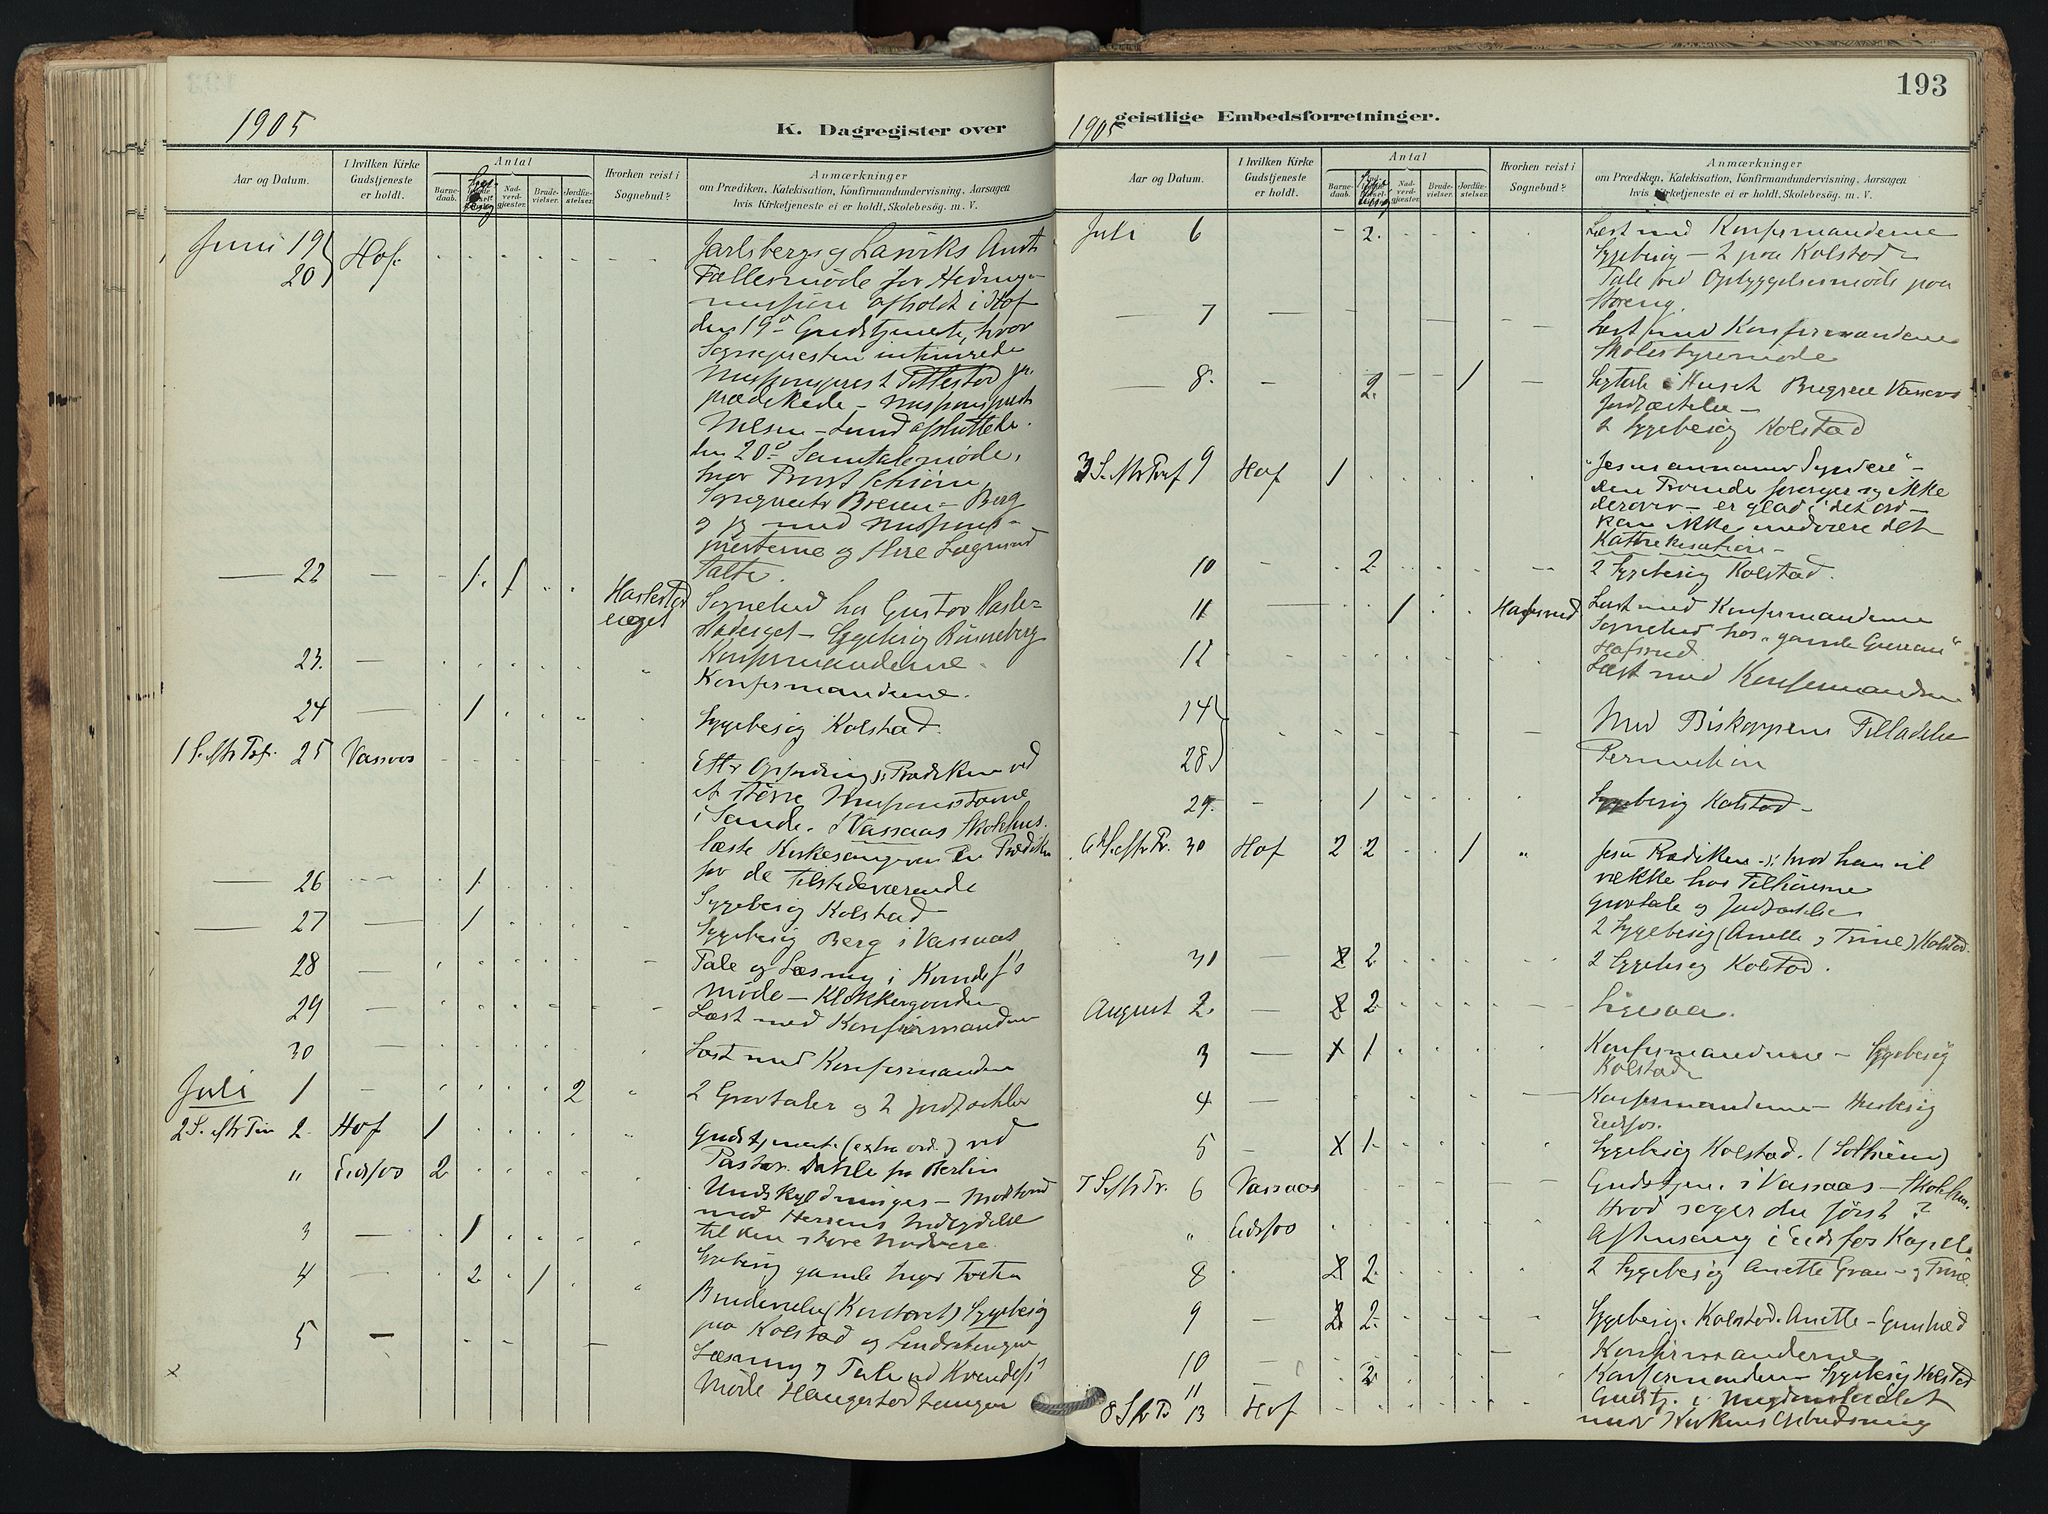 1905
K. Dagregister over
Aar og Datum.
I hvilken Kirke Gudstjeneste er holdt.
Antal
Barnedaab.
Nadverdgjæster.
Brudevielser.
Jordfæstelser.
Hvorhen reist i Sognebud?
Anmærkninger
om Prædiken, Katekisation, Konfirmandundervisning, Aarsagen
hvis Kirketjeneste ei er holdt, Skolebesøg. m. V.
Juni 19 Hof Jarlsberg og Larviks Amts
20 Fællesmøde for Hedninge-
missionen afholdt i Hof
den 19de Gudstjeneste, hvor
Sognepresten intimerede
Missionsprest Tittestad
prædikede - Missionsprest
Nilsen-Lund afsluttede.
den 20de Samtalemøde,
hvor Provst Schiørn
Sogneprester Breien - Berg
og jeg med Missions-
presterne og flere Lægmænd
talte.
22 — 1. 1 Haslestad
eieget Sognebud hos Gustav Hasle-
stadeiget - Sygebesøg Rønneberg
23. — Konfirmanderne
Konfirmanderne.
24 — 1 Sygebesøg Kolstad.
1 S. eftr Tref. 25 Vassaas
Efter Opfordring Prædiken ved
et større Missionsstevne
i Sande. I Vassaas Skolehus
læste Kirkesangeren en Prædiken
for de tilstedeværende
— 26 1. Sygebesøg Kolstad
— 27 — 1 Sygebesøg Berg i Vassaas
28 — Tale og Læsning i Kvindef's
møde - Klokkergaarden
29 — Læst med Konfirmanderne
30 — Læst med Konfirmanderne
Juli 1 — 2 2 Gravtaler og 2 Jordfæstelser
2 S. eftr Trin 2. Hof 1 Gudstjeneste (extra ord.) ved
" Eidsfos 2 Pastor Dahle fra Berlin
Undskyldninger - Modstand
med Herrens Indbydelse
til den store Nadvere
3 — 1 Sygebesøg gamle Inger Tveten
4 — 2 1 Brudevielse (Kontoret) Sygebesøg
paa Kolstad og
5 — Læsning og Tale ved Kvindef's
Møde Haugestadtangen
x
193
1905
geistlige Embedsforretninger.
Aar og Datum.
I hvilken Kirke Gudstjeneste er holdt.
Antal
Barnedaab.
Nadverdgjæster.
Brudevielser.
Jordfæstelser.
Hvorhen reist i Sognebud?
Anmærkninger
om Prædiken, Katekisation, Konfirmandundervisning, Aarsagen
hvis Kirketjeneste ei er holdt, Skolebesøg. m. V.
Juli 6 2. Læst med Konfirmanderne
Sygebesøg - 2 paa Kolstad
Tale ved Opbyggelsesmøde paa
— 7 — Læst med Konfirmanderne
Skolestyremøde
— 8. — 2. 1 i Huset Vassaas
Jordfæstelse -
2 Sygebesøg Kolstad
3 S. eftr Tref 9 Hof 1 "Jesus annamer Syndere" -
den Troende og ikke
derover - er glad i det ord -
kan ikke undvære det
Kathekisation -
10 - 2 2 Sygebesøg Kolstad.
11 — 1 Hafsrud Læst med Konfirmanderne
Sognebud hos "gamle "
Hafsrud
12 Læst med Konfirmanderne
14
28 Med Biskoppens Tilladelse
Permission
29. - 1 Sygebesøg Kolstad -
6 S. eftr Tr. 30 Hof 2 2 1 " Jesu Prædiken : hvad han vil
vække hos Tilhørerne
Gravtale og Jordfæstelse
2 Sygebesøg (Anette og Trine) Kolstad.
31 — 2 2 2 Sygebesøg Kolstad.
August 2. — 2 2 Ligesaa.
3 — 1 1 Konfirmanderne - Sygebesøg
Kolstad
4 — Konfirmanderne - Husbesøg
Eidsfos.
5 - 1 1 Sygebesøg Kolstad. (Solheim)
7 S. eftr Tr. 6 Vassaas Gudstjen. i Vassaas - Skolehus.
Hvad søger du først?
" Eidsfos Aftensang i Eidsfos Kapel
8 2 2 2 Sygebesøg Anette Gran - og Trine
9 — 2 2 Sygebesøg. Kolstad. Anette - Gunhild
10 — Konfirmanderne
11 2 Konfirmanderne - Sygebesøg Kolstad
8 S. eftr Tr 13 Hof Gudstj. i Ungdomslokalet
under Kirkens